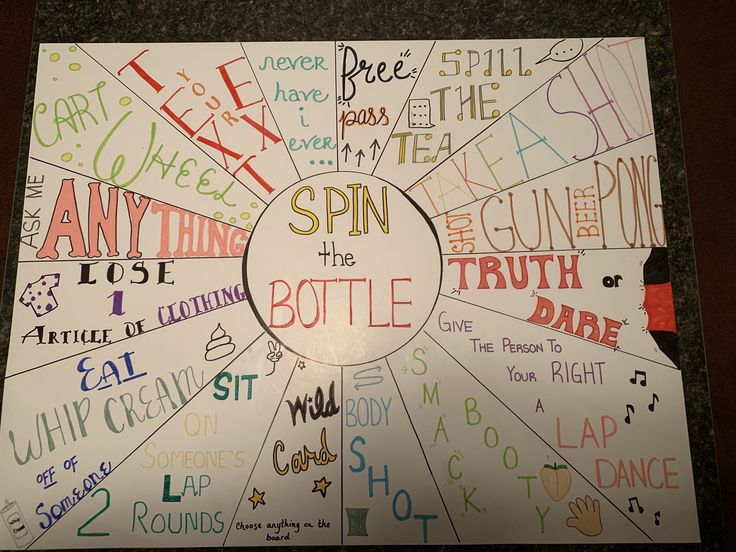 SPIN
the
BOTTLE
never
have
i
ever
...
free
pass
SPILL
THE
TEA
TAKE A SHOT
SHOT
GUN
BEER
PONG
TRUTH or
DARE
GIVE
THE PERSON TO
YOUR RIGHT
A
LAP
DANCE
SMACK
BOOTY
BODY
SHOT
Wild
Card
Choose anything on the
board
SIT
ON
SOMEONE'S
LAP
2 ROUNDS
EAT
WHIP CREAM
OFF OF
Someone
LOSE
1
ARTICLE OF CLOTHING
ASK ME
ANY THING
CART
WHEEL
TEXT
YOUR
EXT